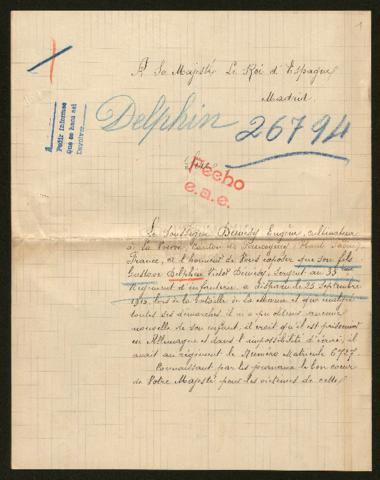 1
A Sa Majesté Le Roi d'Espagne
Madrid
A
Pedir informes
que se haga así
Delphin 26794
Sire
Fecho
e.a.e.
Le Soussigné Eugène, cultivateur
à la canton de Haute Saône
France, a l'honneur de Vous exposer que son fils
Gustave Delphin Victor Sergent au 35me
Régiment d'infanterie, a disparu le 25 Septembre
1915, lors de la bataille de la Marne et que malgré
toutes ses démarches, il n'a pu obtenir aucune
nouvelle de son enfant, il croit qu'il est prisonnier
en Allemagne et dans l'impossibilité d'écrire, il
avait au régiment le Numéro Matricule 6727
Connaissant par les journaux le bon coeur
de Votre Majesté pour les victimes de cette